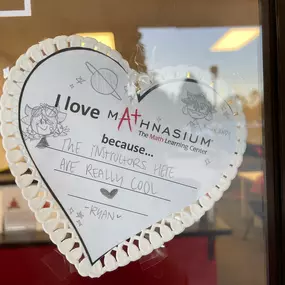 I love MATHNASIUM
The Math Learning Center
because...
THE INSTRUCTORS HERE
ARE REALLY COOL
-RYAN